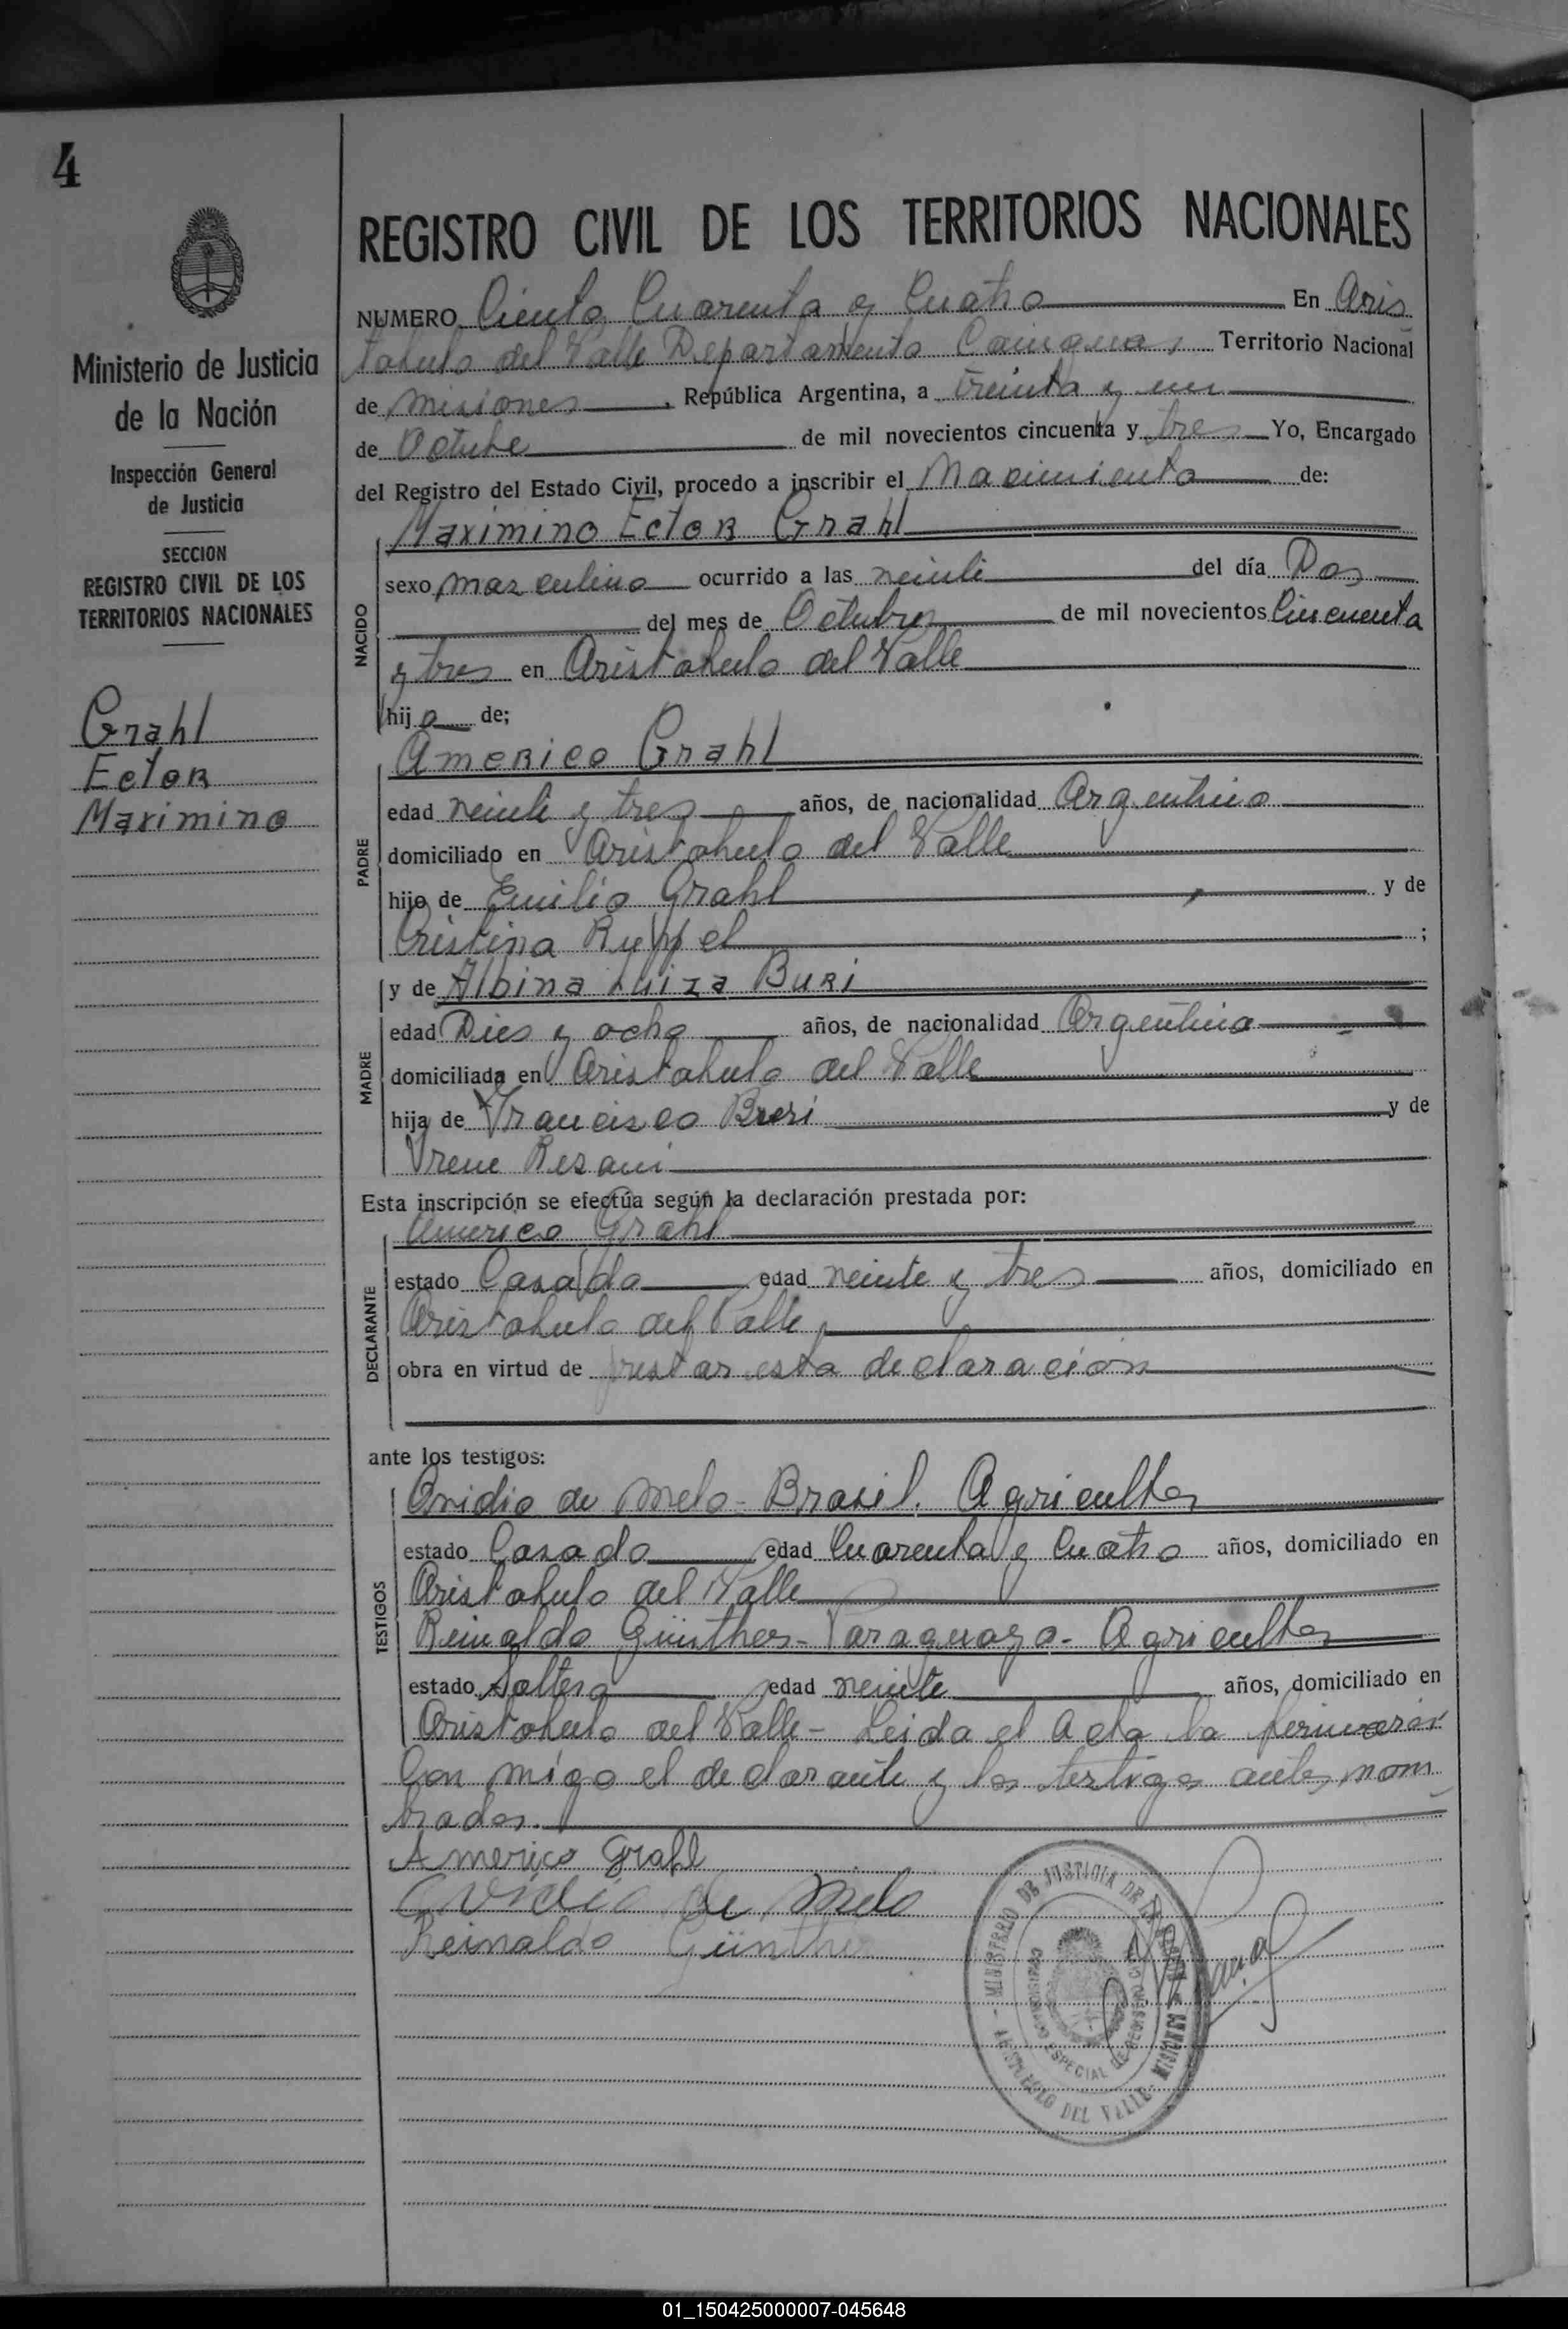 4
Ministerio de Justicia
de la Nación
Inspección General
de Justicia
SECCION
REGISTRO CIVIL DE LOS
TERRITORIOS NACIONALES
Grahl
Ector
Maximino
REGISTRO CIVIL DE LOS TERRITORIOS NACIONALES
NUMERO Ciento Cuarenta y Cuatro En Aris
tobulo del Valle Departamento Cainguas Territorio Nacional
de Misiones, República Argentina, a treinta y un
de Octubre de mil novecientos cincuenta y tres Yo, Encargado
del Registro del Estado Civil, procedo a inscribir el Nacimiento de:
Maximino Ector Grahl
NACIDO
sexo masculino ocurrido a las veinte del día Dos
del mes de Octubre de mil novecientos Cincuenta
y tres en Aristobulo del Valle
hijo de;
Americo Grahl
PADRE
edad veinte y tres años, de nacionalidad Argentino
domiciliado en Aristobulo del Valle
hijo de Emilio Grahl y de
Cristina Ruppel;
y de Albina Luiza Buri
MADRE
edad Dies y ocho años, de nacionalidad Argentina
domiciliada en Aristobulo del Valle
hija de Francisco Buri y de
Yrene Resani
Esta inscripción se efectúa según la declaración prestada por:
Americo Grahl
DECLARANTE
estado Casado edad veinte y tres años, domiciliado en
Aristobulo del Valle
obra en virtud de prestar esta declaración
ante los testigos:
TESTIGOS
Ovidio de Melo - Brasil. Agricultor
estado Casado edad Cuarenta y Cuatro años, domiciliado en
Aristobulo del Valle
Reinaldo Günther - Paraguayo - Agricultor
estado Soltero edad veinte años, domiciliado en
Aristobulo del Valle - Leida el Acta la firmaron
Con migo el declarante y los testigos antes nom
brados.
Americo Grahl
Ovidio de Melo
Reinaldo Günther
MINISTERIO DE JUSTICIA DE LA
ESPECIAL DE REGISTRO
ARISTOBULO DEL VALLE - MISIONES
01_150425000007-045648